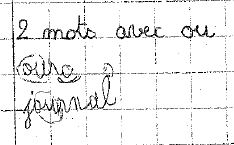 2 mots avec ou
ours
journal